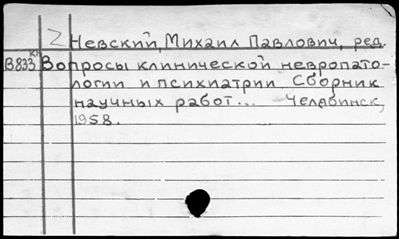 Z Невский, Михаил Павлович, ред.
В833кн Вопросы клинической невропато-
логии и психиатрии Сборник
научных работ... Челябинск,
1958.